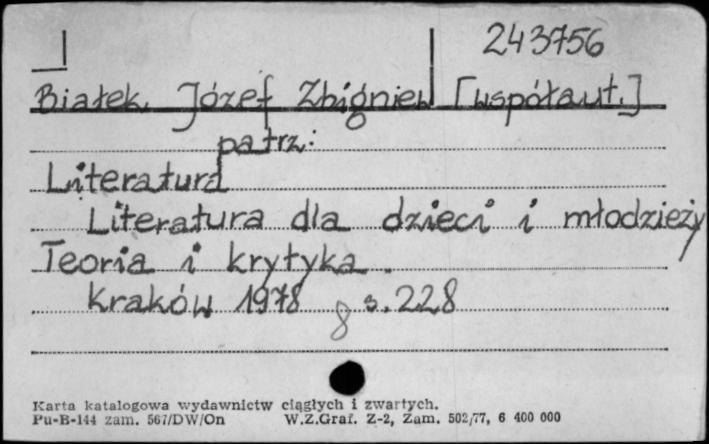 243756
Białek, Józef Zbigniew [współaut.]
patrz:
Literatura
Literatura dla dzieci i młodzieży
Teoria i krytyka.
Kraków 1978 8 s. 228
Karta katalogowa wydawnictw ciągłych i zwartych.
Pu-B-144 zam. 567/DW/On W.Z.Graf. Z-2, Zam. 502/77, 6 400 000